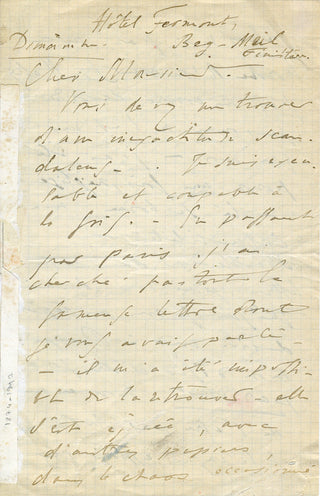 Hôtel Fermont,
Dimanche. Beg-Meil
Finistère.
Cher Monsieur.
Vous devez me trouver
d'une ingratitude scan-
daleuse. Je suis excu-
sable et coupable à
la fois. En passant
par Paris j'ai
cherché partout la
fameuse lettre dont
je vous avais parlé
- il m'a été impossi-
ble de la retrouver - elle
s'est égarée, avec
d'autres papiers,
dans le chaos occasionné